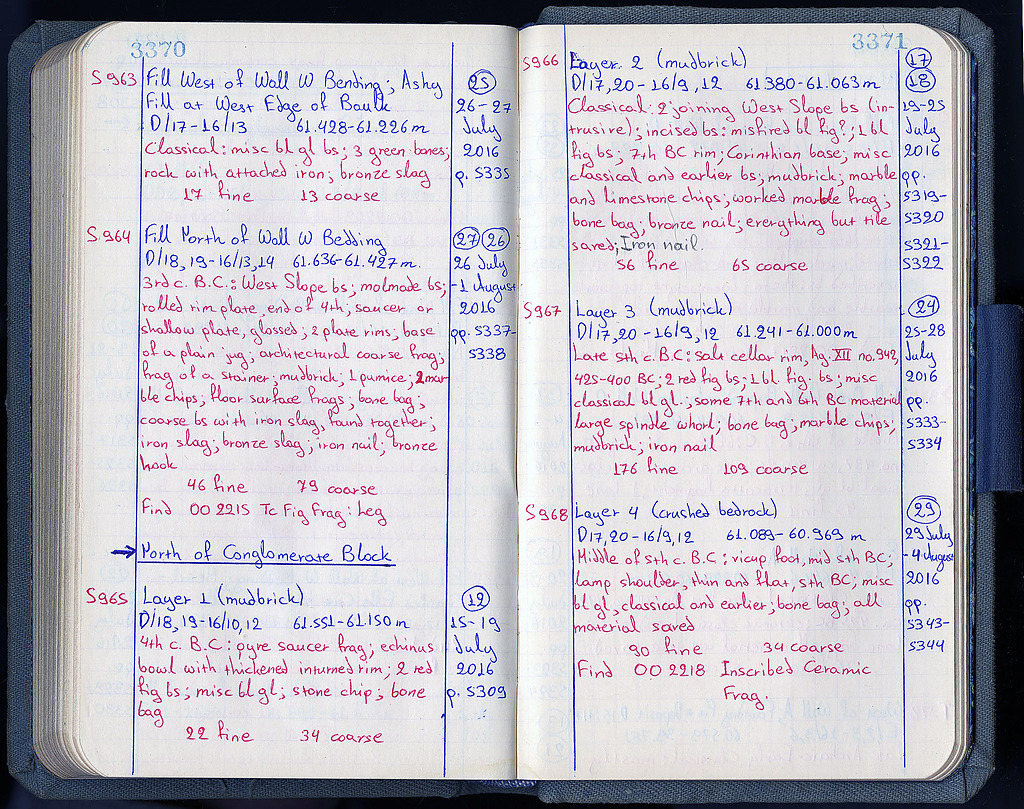 3370
S963 Fill West of Wall W Bending; Ashy (25)
Fill at West Edge of Baulk 26-27
D/17-16/13 61.428-61.226m July
Classical: misc bl gl bs; 3 green bones; 2016
rock with attached iron; bronze slag p. 5335
17 fine 13 coarse
S964 Fill North of Wall W Bedding (27) (26)
D/18,19-16/13,14 61.636-61.427m. 26 July
3rd c. B.C.: West Slope bs; molmade bs; -1 August
rolled rim plate, end of 4th; saucer or 2016
shallow plate, glossed; 2 plate rims; base pp. 5337-
of a plain jug; architectural coarse frag; 5338
frag of a stainer; mudbrick; 1 pumice; 2 mar-
ble chips; floor surface frags; bone bag;
coarse bs with iron slag, found together;
iron slag; bronze slag; iron nail; bronze
hook
46 fine 79 coarse
Find OO 2215 Tc Fig Frag: Leg
→ North of Conglomerate Block
S965 Layer 1 (mudbrick) (12)
D/18,19-16/10,12 61.551-61.150m 15-19
4th c. B.C.: pyre saucer frag; echinus July
bowl with thickened inturned rim; 2 red 2016
fig bs; misc bl gl; stone chip; bone p. 5309
bag
22 fine 34 coarse
3371
S966 Layer 2 (mudbrick) (17)
D/17,20-16/9,12 61.380-61.063m (18)
Classical: 2 joining West Slope bs (in- 19-25
trusive); incised bs: misfired bl fig?; 1 bl July
fig bs; 7th BC rim; Corinthian base; misc 2016
classical and earlier bs; mudbrick; marble pp.
and limestone chips; worked marble frag; 5319-
bone bag; bronze nail; everything but tile 5320
saved; Iron nail. 5321-
56 fine 65 coarse 5322
S967 Layer 3 (mudbrick) (24)
D/17,20-16/9,12 61.241-61.000m 25-28
Late 5th c. B.C: salt cellar rim, Ag. XII no. 942, July
425-400 BC; 2 red fig bs; 1 bl. fig. bs; misc 2016
classical bl gl.; some 7th and 6th BC material pp.
large spindle whorl; bone bag; marble chips; 5333-
mudbrick; iron nail 5334
176 fine 109 coarse
S968 Layer 4 (crushed bedrock) (29)
D17,20-16/9,12 61.089-60.969m 29 July
Middle of 5th c. B.C: vicup foot, mid 5th BC; -4 August
lamp shoulder, thin and flat, 5th BC; misc 2016
bl gl, classical and earlier; bone bag; all pp.
material saved 5343-
90 fine 34 coarse 5344
Find OO 2218 Inscribed Ceramic
Frag.